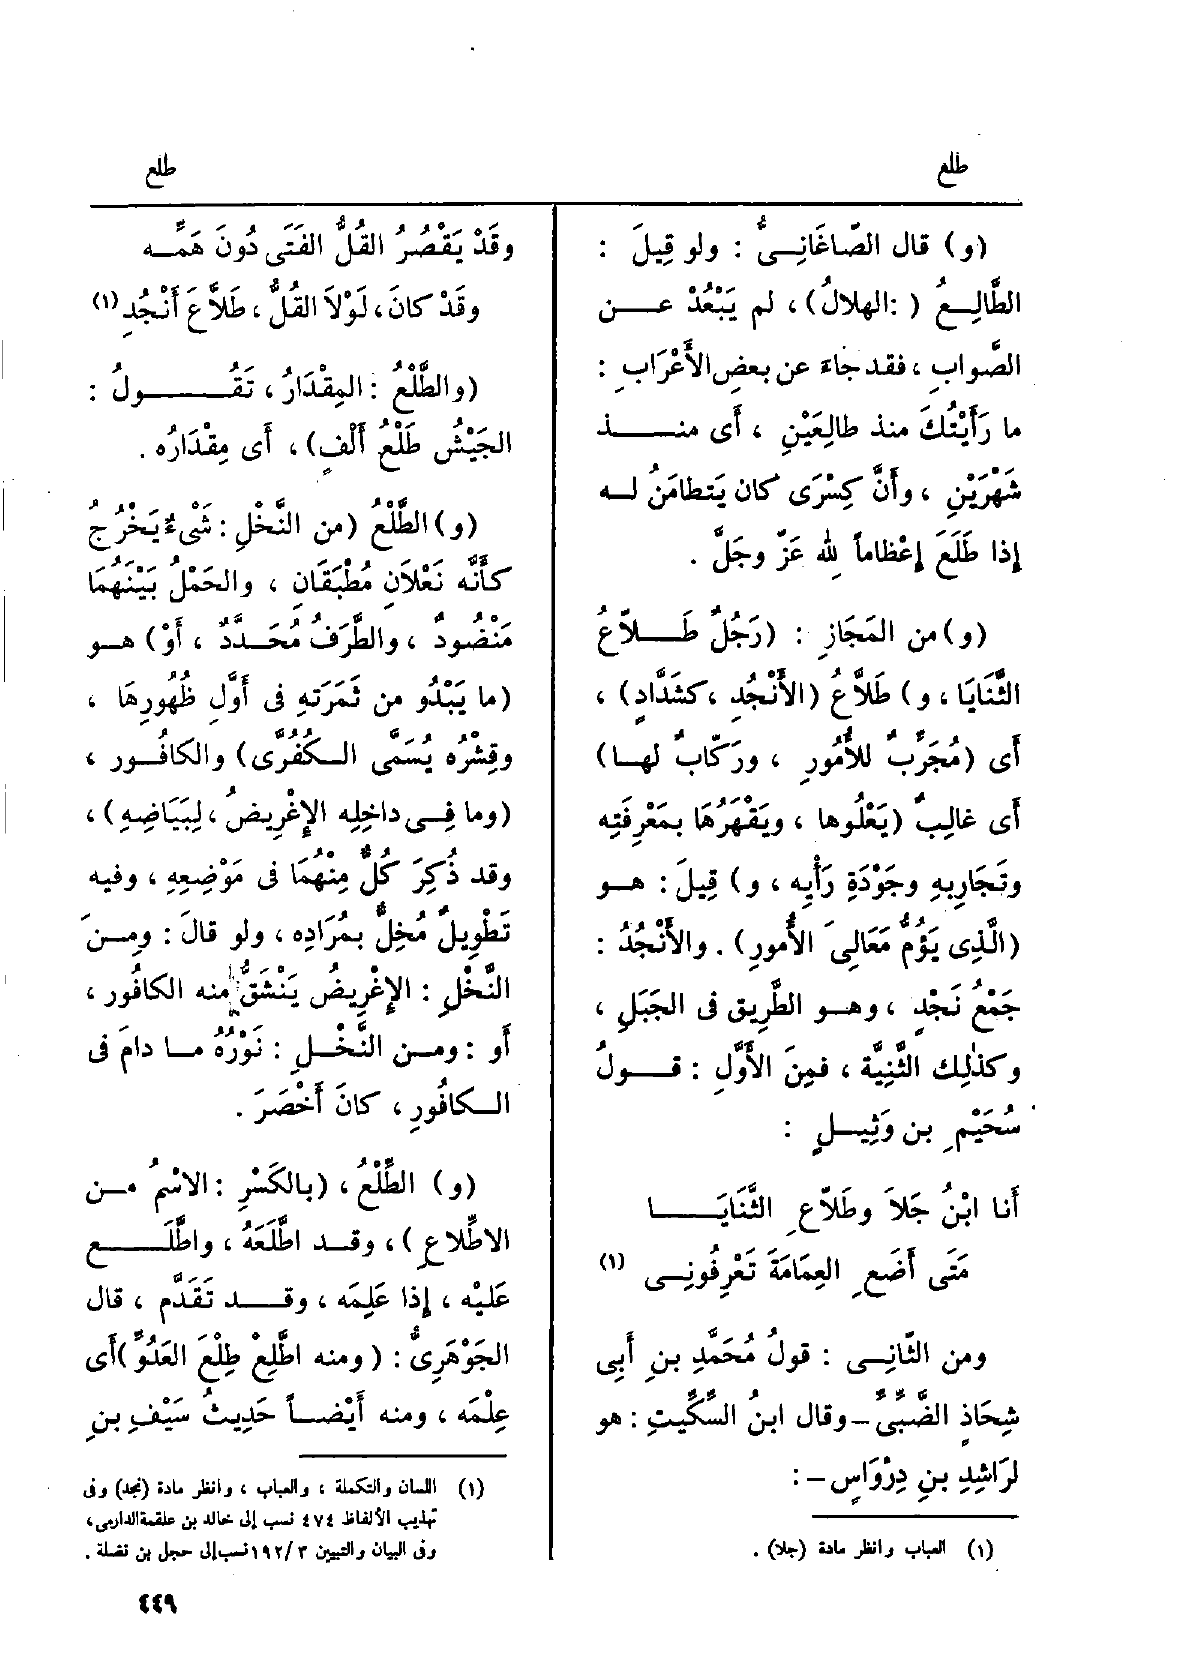 طلع
طلع
(و) قال الصّاغَانِىُّ : ولو قِيلَ :
الطَّالِعُ ( :الهلالُ) ، لم يَبْعُدْ عن
الصَّوابِ ، فقد جاءَ عن بعضِ الأَعْرَابِ :
ما رَأَيْتُكَ منذ طالِعَيْنِ ، أَى منذ
شَهْرَيْنِ ، وأَنَّ كِسْرَى كان يَتطامَنُ له
إذا طَلَعَ إِعْظاماً لله عَزّ وجَلَّ .
(و) من المَجَازِ : (رَجُلٌ طَلاّعُ
الثَّنَايَا ، و) طَلاَّعُ (الأَنْجُدِ ، كشَدَّادٍ) ،
أَى (مُجَرِّبٌ للأُمُورِ ، ورَكّابٌ لها)
أَى غالِبٌ (يَعْلُوها ، ويَقْهَرُهَا بمَعْرِفَتِه
وتَجَارِبِهِ وجَوْدَةِ رَأْيِه ، و) قِيلَ : هو
(الَّذِى يَؤُمُّ مَعَالِىَ الأُمورِ) . والأَنْجُدُ :
جَمْعُ نَجْدٍ ، وهو الطَّرِيق فى الجَبَلِ ،
وكذلِك الثَّنِيَّة ، فمِنَ الأَوَّلِ : قولُ
سُحَيْمِ بن وَثِيلٍ :
أَنا ابْنُ جَلاَ وطَلاّعِ الثَّنَايَا
مَتَى أَضَعِ العِمَامَةَ تَعْرِفُونِى (١)
ومن الثّانِى : قولُ مُحَمَّدِ بنِ أَبِى
شِحَاذٍ الضَّبِّىِّ – وقال ابنُ السِّكِّيتِ : هو
لرَاشِدِ بنِ دِرْوَاسٍ – :
(١) العباب وانظر مادة (جلا) .
وقَدْ يَقْصُرُ القُلُّ الفَتَى دُونَ هَمِّه
وقَدْ كانَ ، لَوْلاَ القُلُّ ، طَلاَّعَ أَنْجُدِ (١)
(والطَّلْعُ : المِقْدَارُ ، تَقُولُ :
الجَيْشُ طَلْعُ أَلْفٍ) ، أَى مِقْدَارُه .
(و) الطَّلْعُ (من النَّخْلِ : شَىْءٌ يَخْرُجُ
كأَنَّه نَعْلاَنِ مُطْبَقَانِ ، والحَمْلُ بَيْنَهُمَا
مَنْضُودٌ ، والطَّرَفُ مُحَدَّدٌ ، أَوْ) هو
(ما يَبْدُو من ثَمَرَتِهِ فى أَوَّلِ ظُهُورِهَا ،
وقِشْرُه يُسَمَّى الكُفُرَّى) والكافُور ،
(وما فِى داخِلِه الإِغْرِيضُ ، لِبَيَاضِهِ) ،
وقد ذُكِرَ كُلٌّ مِنْهُمَا فى مَوْضِعِهِ ، وفيه
تَطْوِيلٌ مُخِلٌّ بمُرَادِه ، ولو قالَ : ومِنَ
النَّخْلِ : الإِغْرِيضُ يَنْشَقُّ منه الكافُور ،
أو : ومن النَّخْلِ : نَوْرُهُ ما دامَ فى
الكافُورِ ، كانَ أَخْصَرَ .
(و) الطِّلْعُ ، (بالكَسْرِ : الاسْمُ من
الاطِّلاعِ) ، وقد اطَّلَعَهُ ، واطَّلَع
عَلَيْه ، إِذا عَلِمَه ، وقد تَقَدَّم ، قال
الجَوْهَرِىُّ : (ومنه اطَّلِعْ طِلْعَ العَدُوِّ) أَى
عِلْمَه ، ومنه أَيْضاً حَدِيثُ سَيْفِ بنِ
(١) اللسان والتكملة ، والعباب ، وانظر مادة (نجد) وفى
تهذيب الألفاظ ٤٧٤ نسب إلى خالد بن علقمة الدارمى ،
وفى البيان والتبيين ١٩٢/٣ نسب إلى حجل بن نضلة .
٤٤٩